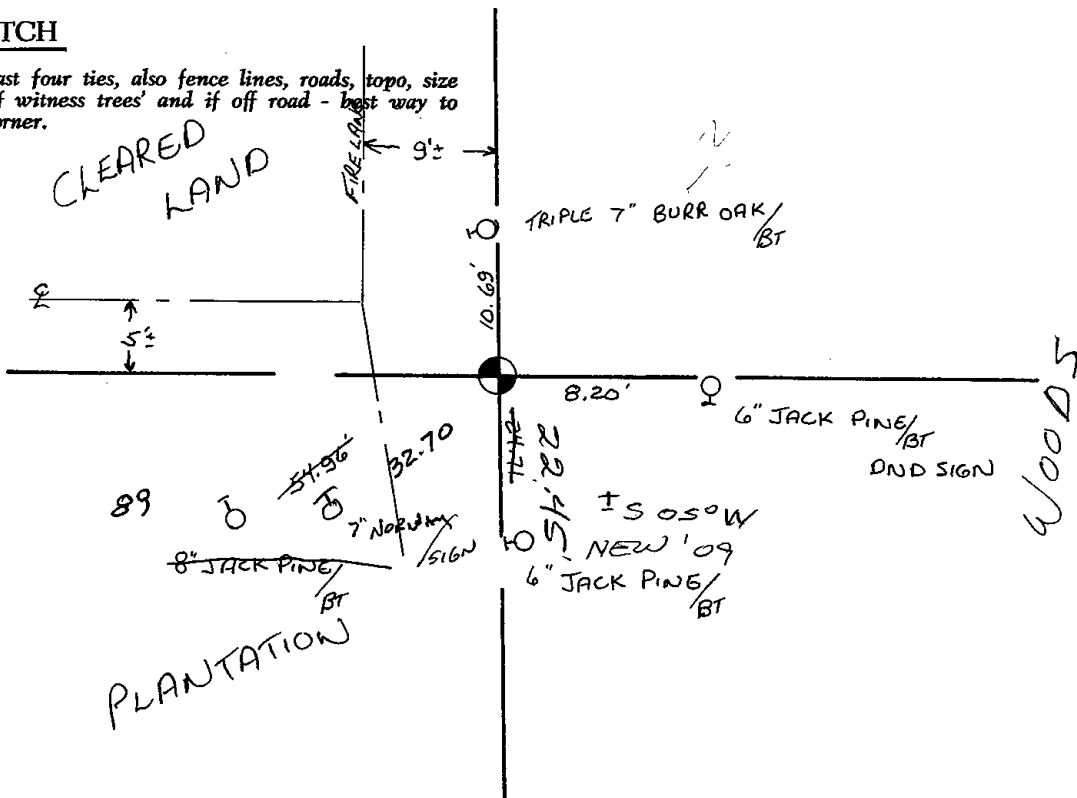 TCH
ast four ties, also fence lines, roads, topo, size
f witness trees' and if off road - best way to
orner.
CLEARED
LAND
FIRE LANE
9'±
N
TRIPLE 7" BURR OAK/
BT
10.69'
℄
5'±
8.20'
6" JACK PINE/
BT
DND SIGN
WOODS
54.96'
32.70
22.45'
89
7" NORWAY
/SIGN
8" JACK PINE/
BT
± S 05° W
NEW '09
6" JACK PINE/
BT
PLANTATION